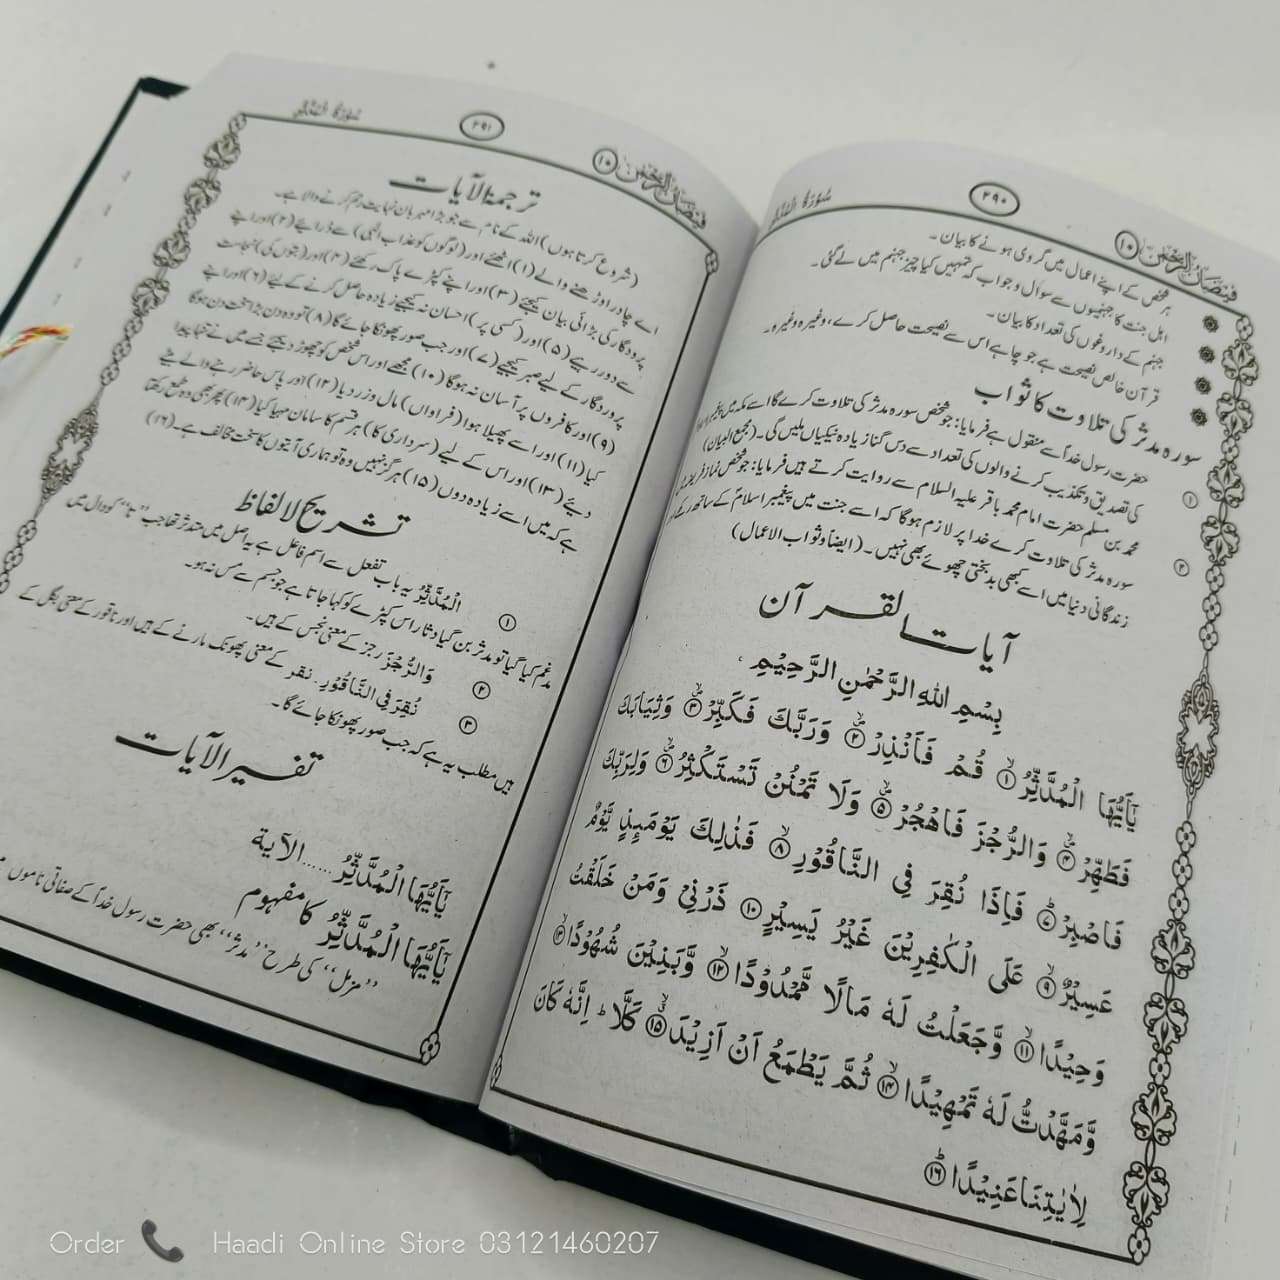 فیضان الرحمٰن ۱۰
۲۹۰
سُوْرَۃُ الْمُدَّثِّر
ہر شخص کے اپنے اعمال میں گروی ہونے کا بیان۔
اہل جنت کا جہنمیوں سے سوال و جواب کہ تمہیں کیا چیز جہنم میں لے گئی۔
جہنم کے داروغوں کی تعداد کا بیان۔
قرآن خالص نصیحت ہے جو چاہے اس سے نصیحت حاصل کرے، وغیرہ وغیرہ۔
سورہ مدثر کی تلاوت کا ثواب
۱ حضرت رسول خداؐ سے منقول ہے فرمایا: جو شخص سورہ مدثر کی تلاوت کرے گا اسے مکہ میں پیغمبر
کی تصدیق و تکذیب کرنے والوں کی تعداد سے دس گنا زیادہ نیکیاں ملیں گی۔ (مجمع البیان)
۲ محمد بن مسلم حضرت امام محمد باقر علیہ السلام سے روایت کرتے ہیں فرمایا: جو شخص نماز فریضہ میں
سورہ مدثر کی تلاوت کرے خدا پر لازم ہوگا کہ اسے جنت میں پیغمبر اسلامؐ کے ساتھ رکھے اور
زندگانی دنیا میں اسے کبھی بدبختی چھوئے بھی نہیں۔ (ایضاً و ثواب الاعمال)
آیات القرآن
بِسْمِ اللهِ الرَّحْمٰنِ الرَّحِيْمِ
يٰٓاَيُّهَا الْمُدَّثِّرُ ۝۱ قُمْ فَاَنْذِرْ ۝۲ وَرَبَّكَ فَكَبِّرْ ۝۳ وَثِيَابَكَ
فَطَهِّرْ ۝۴ وَالرُّجْزَ فَاهْجُرْ ۝۵ وَلَا تَمْنُنْ تَسْتَكْثِرُ ۝۶ وَلِرَبِّكَ
فَاصْبِرْ ۝۷ فَاِذَا نُقِرَ فِي النَّاقُوْرِ ۝۸ فَذٰلِكَ يَوْمَىِٕذٍ يَّوْمٌ
عَسِيْرٌ ۝۹ عَلَى الْكٰفِرِيْنَ غَيْرُ يَسِيْرٍ ۝۱۰ ذَرْنِيْ وَمَنْ خَلَقْتُ
وَحِيْدًا ۝۱۱ وَّجَعَلْتُ لَهٗ مَالًا مَّمْدُوْدًا ۝۱۲ وَّبَنِيْنَ شُهُوْدًا ۝۱۳
وَّمَهَّدْتُّ لَهٗ تَمْهِيْدًا ۝۱۴ ثُمَّ يَطْمَعُ اَنْ اَزِيْدَ ۝۱۵ كَلَّا ؕ اِنَّهٗ كَانَ
لِاٰيٰتِنَا عَنِيْدًا ۝۱۶
فیضان الرحمٰن ۱۰
۲۹۱
سُوْرَۃُ الْمُدَّثِّر
ترجمۃ الآیات
(شروع کرتا ہوں) اللہ کے نام سے جو بڑا مہربان نہایت رحم کرنے والا ہے۔
اے چادر اوڑھنے والے (۱) اٹھئے اور (لوگوں کو عذاب الٰہی) سے ڈرایئے (۲) اور اپنے
پروردگار کی بڑائی بیان کیجئے (۳) اور اپنے کپڑے پاک رکھئے (۴) اور (بتوں کی) نجاست
سے دور رہے (۵) اور (کسی پر) احسان نہ کیجئے زیادہ حاصل کرنے کے لئے (۶) اور اپنے
پروردگار کے لئے صبر کیجئے (۷) اور جب صور پھونکا جائے گا (۸) تو وہ دن بڑا سخت دن ہوگا
(۹) اور کافروں پر آسان نہ ہوگا (۱۰) مجھے اور اس شخص کو چھوڑ دیجئے جسے میں نے تنہا پیدا
کیا (۱۱) اور اسے پھیلا ہوا (فراواں) مال و زر دیا (۱۲) اور پاس حاضر رہنے والے بیٹے
دیئے (۱۳) اور اس کے لیے (سرداری کا) ہر قسم کا سامان مہیا کیا (۱۴) پھر بھی وہ طمع رکھتا
ہے کہ میں اسے زیادہ دوں (۱۵) ہرگز نہیں وہ تو ہماری آیتوں کا سخت مخالف ہے۔ (۱۶)
تشریح الالفاظ
۱ الْمُدَّثِّرُ یہ باب تفعل سے اسم فاعل ہے یہ اصل میں متدثر تھا جب "تا" کو دال میں
مدغم کیا گیا تو مدثر بن گیا دثار اس کپڑے کو کہا جاتا ہے جو جسم سے مس نہ ہو۔
۲ وَالرُّجْزَ رجز کے معنی نجس کے ہیں۔
۳ نُقِرَ فِي النَّاقُوْرِ۔ نقر کے معنی پھونک مارنے کے ہیں اور ناقور کے معنی بگل کے
ہیں مطلب یہ ہے کہ جب صور پھونکا جائے گا۔
تفسیر الآیات
يٰٓاَيُّهَا الْمُدَّثِّرُ ..... الآیۃ
يٰٓاَيُّهَا الْمُدَّثِّرُ کا مفہوم
"مزمل" کی طرح "مدثر" بھی حضرت رسول خداؐ کے صفاتی ناموں
Order Haadi Online Store 03121460207